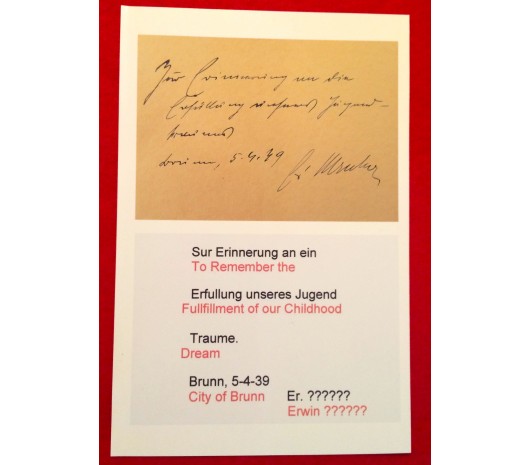 Zur Erinnerung an die
Erfüllung eines Jugend-
traumes
Brünn, 5.4.39
Sur Erinnerung an ein
To Remember the
Erfullung unseres Jugend
Fullfillment of our Childhood
Traume.
Dream
Brunn, 5-4-39 Er. ??????
City of Brunn Erwin ??????